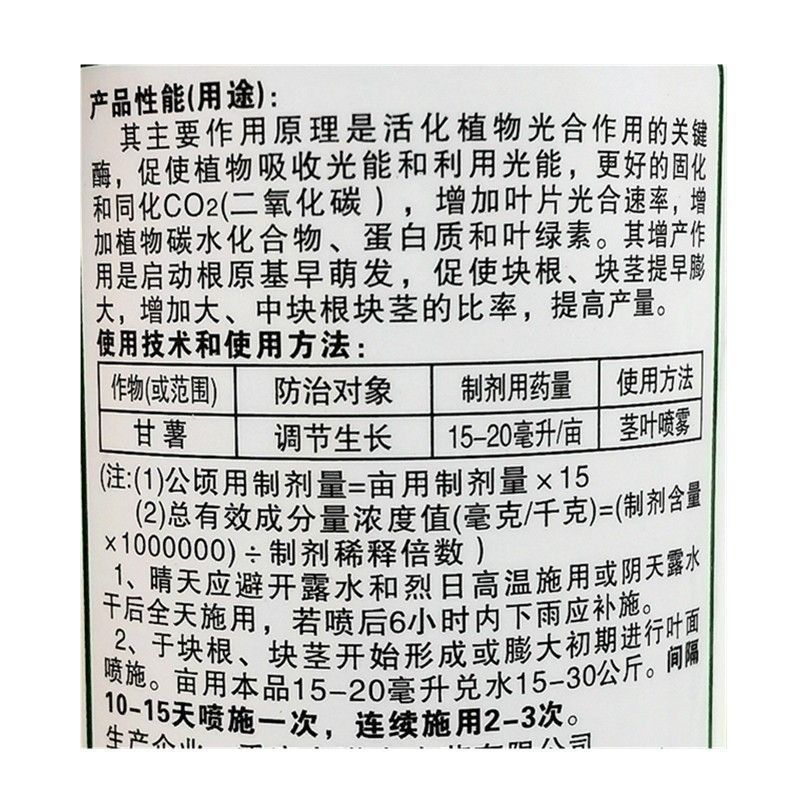 产品性能(用途):
其主要作用原理是活化植物光合作用的关键
酶，促使植物吸收光能和利用光能，更好的固化
和同化CO2(二氧化碳），增加叶片光合速率，增
加植物碳水化合物、蛋白质和叶绿素。其增产作
用是启动根原基早萌发，促使块根、块茎提早膨
大，增加大、中块根块茎的比率，提高产量。
使用技术和使用方法:
作物(或范围) 防治对象 制剂用药量 使用方法
甘薯 调节生长 15-20毫升/亩 茎叶喷雾
(注:(1)公顷用制剂量=亩用制剂量×15
(2)总有效成分量浓度值(毫克/千克)=(制剂含量
×1000000)÷制剂稀释倍数）
1、晴天应避开露水和烈日高温施用或阴天露水
干后全天施用，若喷后6小时内下雨应补施。
2、于块根、块茎开始形成或膨大初期进行叶面
喷施。亩用本品15-20毫升兑水15-30公斤。间隔
10-15天喷施一次，连续施用2-3次。
生产企业: